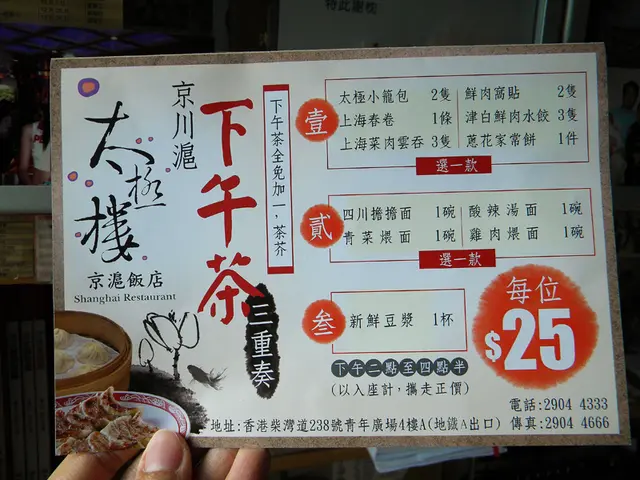 特此謝悅
太極樓
京滬飯店
Shanghai Restaurant
京川滬
下午茶
三重奏
下午茶全免加一，茶芥
壹
太極小籠包 2隻 鮮肉窩貼 2隻
上海春卷 1條 津白鮮肉水餃 3隻
上海菜肉雲吞 3隻 蔥花家常餅 1件
選一款
貳
四川擔擔面 1碗 酸辣湯面 1碗
青菜煨面 1碗 雞肉煨面 1碗
選一款
叁
新鮮豆漿 1杯
每位
$25
下午二點至四點半
(以入座計，攜走正價)
電話:2904 4333
地址:香港柴灣道238號青年廣場4樓A(地鐵A出口) 傳真:2904 4666